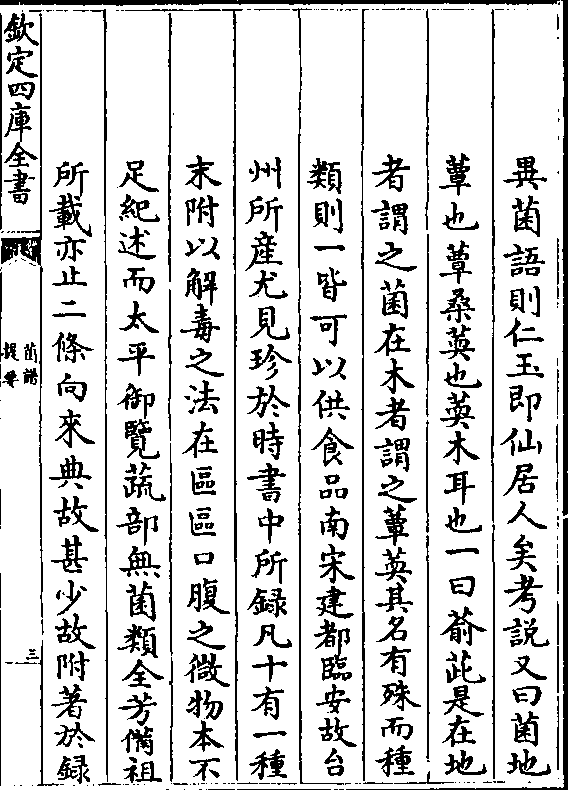 異菌語則仁玉即仙居人矣考説文曰菌地
蕈也蕈桑䓴也䓴木耳也一曰萮茈是在地
者謂之菌在木者謂之蕈䓴其名有殊而種
類則一皆可以供食品南宋建都臨安故台
州所産尤見珍於時書中所録凡十有一種
末附以解毒之法在區區口腹之微物本不
足紀述而太平御覽蔬部無菌類全芳備祖
所載亦止二條向來典故甚少故附著於録
欽定四庫全書
菌譜
提要
三